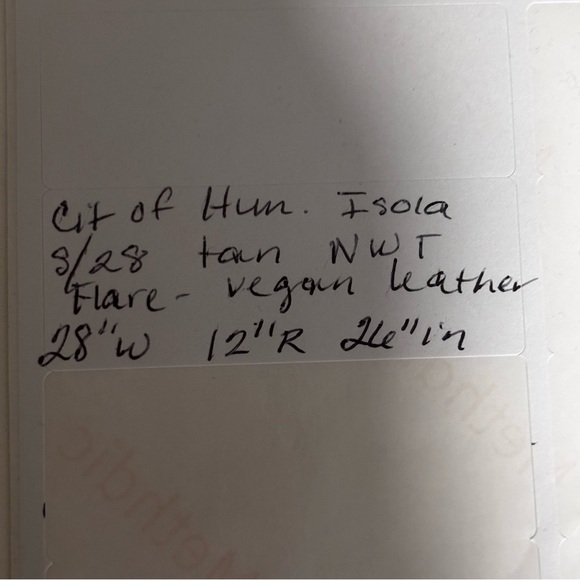 Cit of Hum. Isola
S/28 tan NWT
Flare - vegan leather
28"W 12"R 26"in